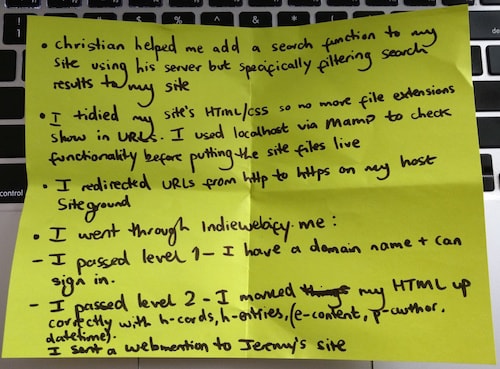 • Christian helped me add a search function to my
site using his server but specifically filtering search
results to my site
• I tidied my site's HTML/CSS so no more file extensions
show in URLs. I used localhost via MAMP to check
functionality before putting the site files live
• I redirected URLs from http to https on my host
Siteground
• I went through Indiewebify.me:
- I passed level 1 - I have a domain name + can
sign in.
- I passed level 2 - I marked things my HTML up
correctly with h-cards, h-entries, (e-content, p-author,
datetime).
I sent a webmention to Jeremy's site
control